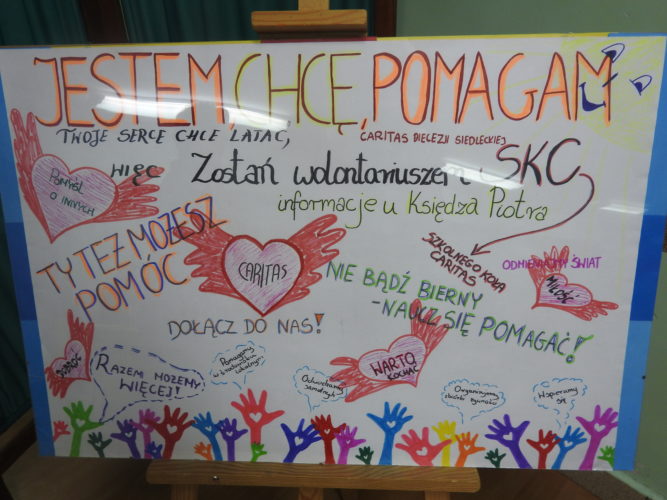 JESTEM, CHCĘ, POMAGAM
TWOJE SERCE CHCE LATAĆ,
CARITAS DIECEZJI SIEDLECKIEJ
WIĘC Zostań wolontariuszem SKC
informacje u Księdza Piotra
POMYŚL
O INNYCH
SZKOLNEGO KOŁA
CARITAS
TY TEŻ MOŻESZ
POMÓC
CARITAS
ODMIENIAJMY ŚWIAT
MIŁOŚĆ
NIE BĄDŹ BIERNY
-NAUCZ SIĘ POMAGAĆ!
DOŁĄCZ DO NAS!
WARTO
KOCHAĆ
RAZEM MOŻEMY
WIĘCEJ!
Pomagamy
Odwiedzamy
samotnych
Organizujemy
zbiórki żywności
Wspieramy
się